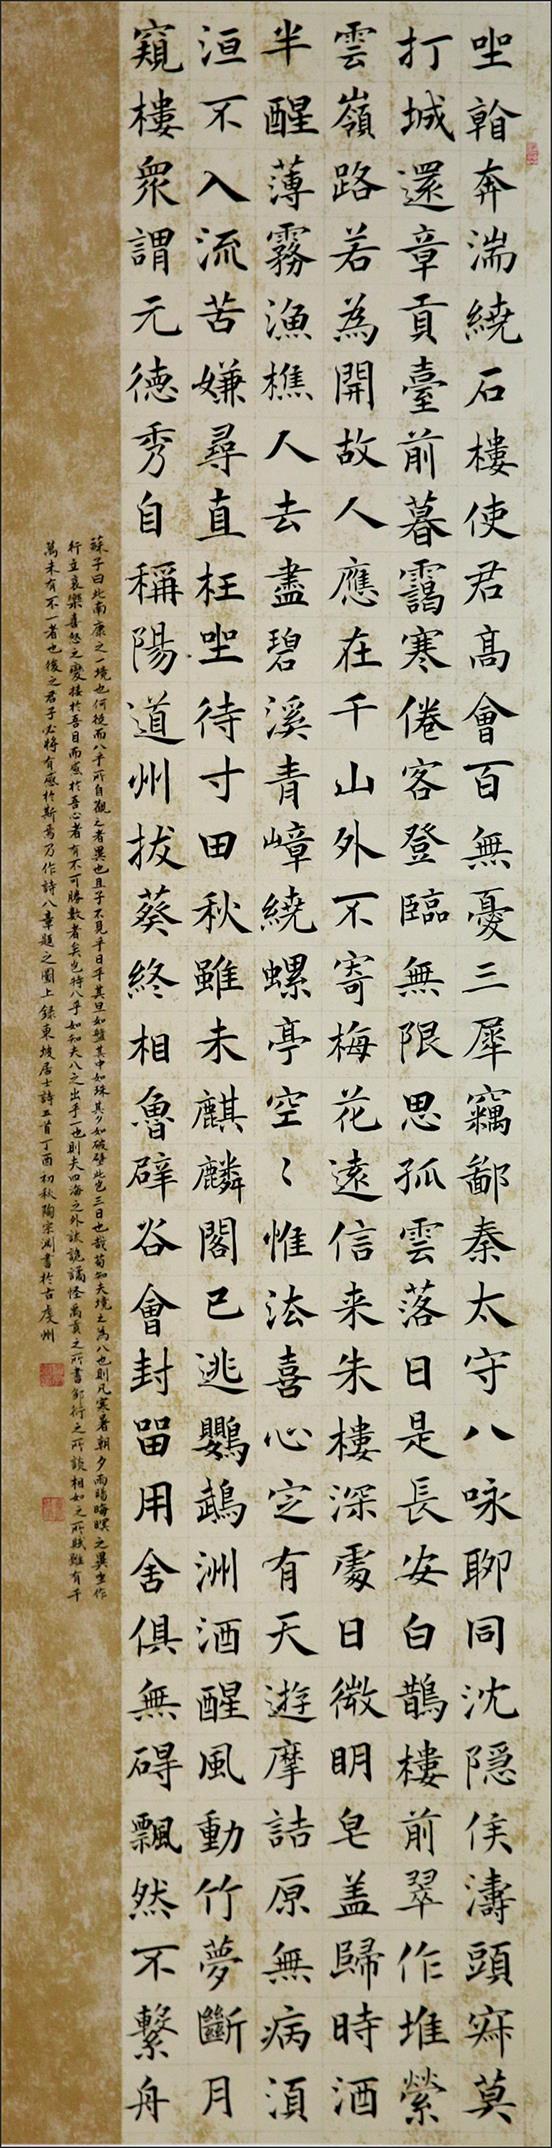 㘴看奔湍繞石樓使君高會百無憂三犀竊鄙秦太守八咏聊同沈隱侯濤頭寂莫
打城還章貢臺前暮靄寒倦客登臨無限思孤雲落日是長安白鵲樓前翠作堆縈
雲嶺路若為開故人應在千山外不寄梅花遠信来朱樓深處日微明皂盖歸時酒
半醒薄霧漁樵人去盡碧溪青嶂繞螺亭空〻惟法喜心定有天遊摩詰原無病須
洹不入流苦嫌尋直枉㘴待寸田秋雖未麒麟閣已逃鸚鵡洲酒醒風動竹夢斷月
窺樓衆謂元德秀自稱陽道州拔葵終相魯辟谷會封留用舍俱無碍飄然不繫舟
蘇子曰此南康之一境也何從而八乎所自觀之者異也且子不見乎日乎其旦如盤其中如珠其夕如破璧此豈三日也哉苟知夫境之為八也則凡寒暑朝夕雨暘晦暝之異坐作
行立哀樂喜怒之變接於吾目而感於吾心者有不可勝數者矣豈特八乎如知夫八之出乎一也則夫四海之外詼詭譎怪禹貢之所書鄒衍之所談相如之所賦雖有千
萬未有不一者也後之君子必將有感於斯焉乃作詩八章題之圖上録東坡居士詩五首丁酉初秋陶宗渊書於古虔州